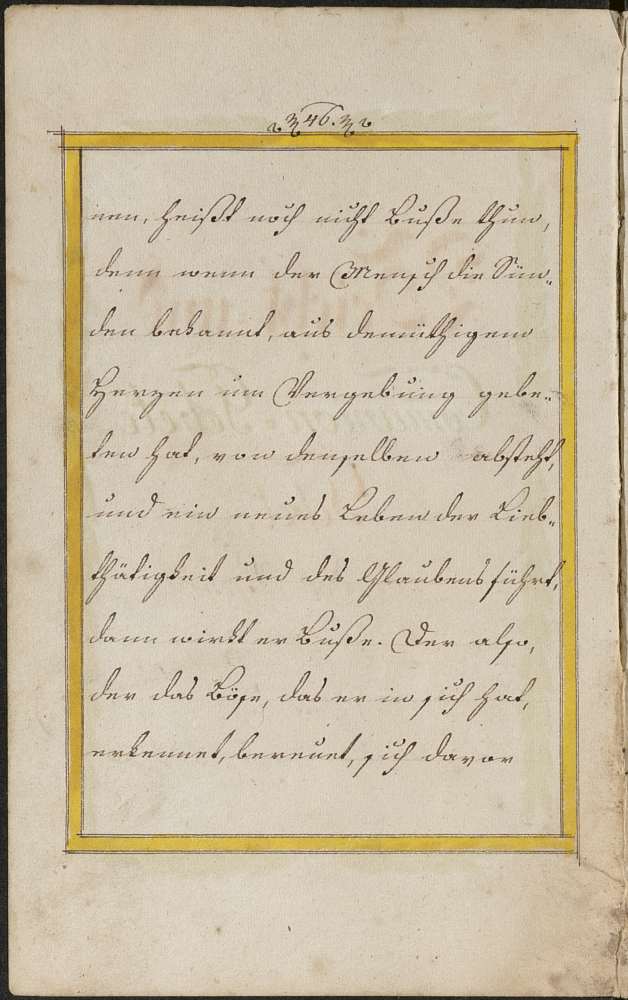 46.
nen, heißt noch nicht Buße thun,
denn wenn der Mensch die Sün-
den bekannt, aus demüthigem
Herzen um Vergebung gebe-
ten hat, von denselben absteht,
und ein neues Leben der Lieb-
thätigkeit und des Glaubens führt,
dann wirkt er Buße. Der also,
der das Böse, das er in sich hat,
erkennet, bereuet, sich davor